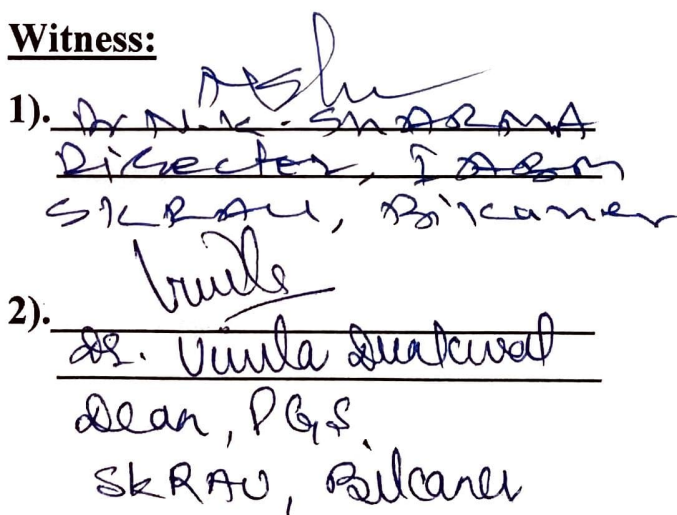 Witness:
1).
Dr N.K. SHARMA
Director, IABM
SKRAU, Bikaner
2).
Dr. Vimla Dunkwal
Dean, PGS
SKRAU, Bikaner